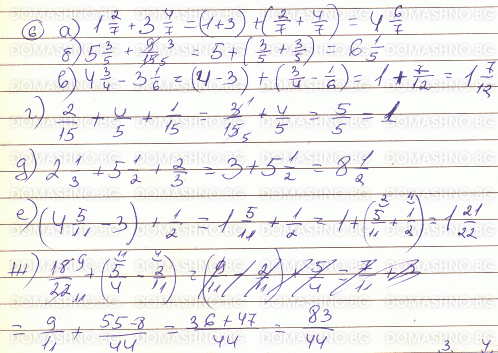 ⑥ а) 1 2/7 + 3 4/7 = (1+3) + (2/7 + 4/7) = 4 6/7
б) 5 3/5 + 9/15 3/5 = 5 + (3/5 + 3/5) = 6 1/5
в) 4 3/4 - 3 1/6 = (4-3) + (3/4 - 1/6) = 1 + 7/12 = 1 7/12
г) 2/15 + 4/5 + 1/15 = 3 1/15 5 + 4/5 = 5/5 = 1
д) 2 1/3 + 5 1/2 + 2/3 = 3 + 5 1/2 = 8 1/2
е) (4 5/11 - 3) + 1/2 = 1 5/11 + 1/2 = 1 + (5/11 + 1/2) = 1 21/22
ж) 18 9/22 11 + (5/4 - 2/11) =
= 9/11 + 55-8/44 = 36+47/44 = 83/44